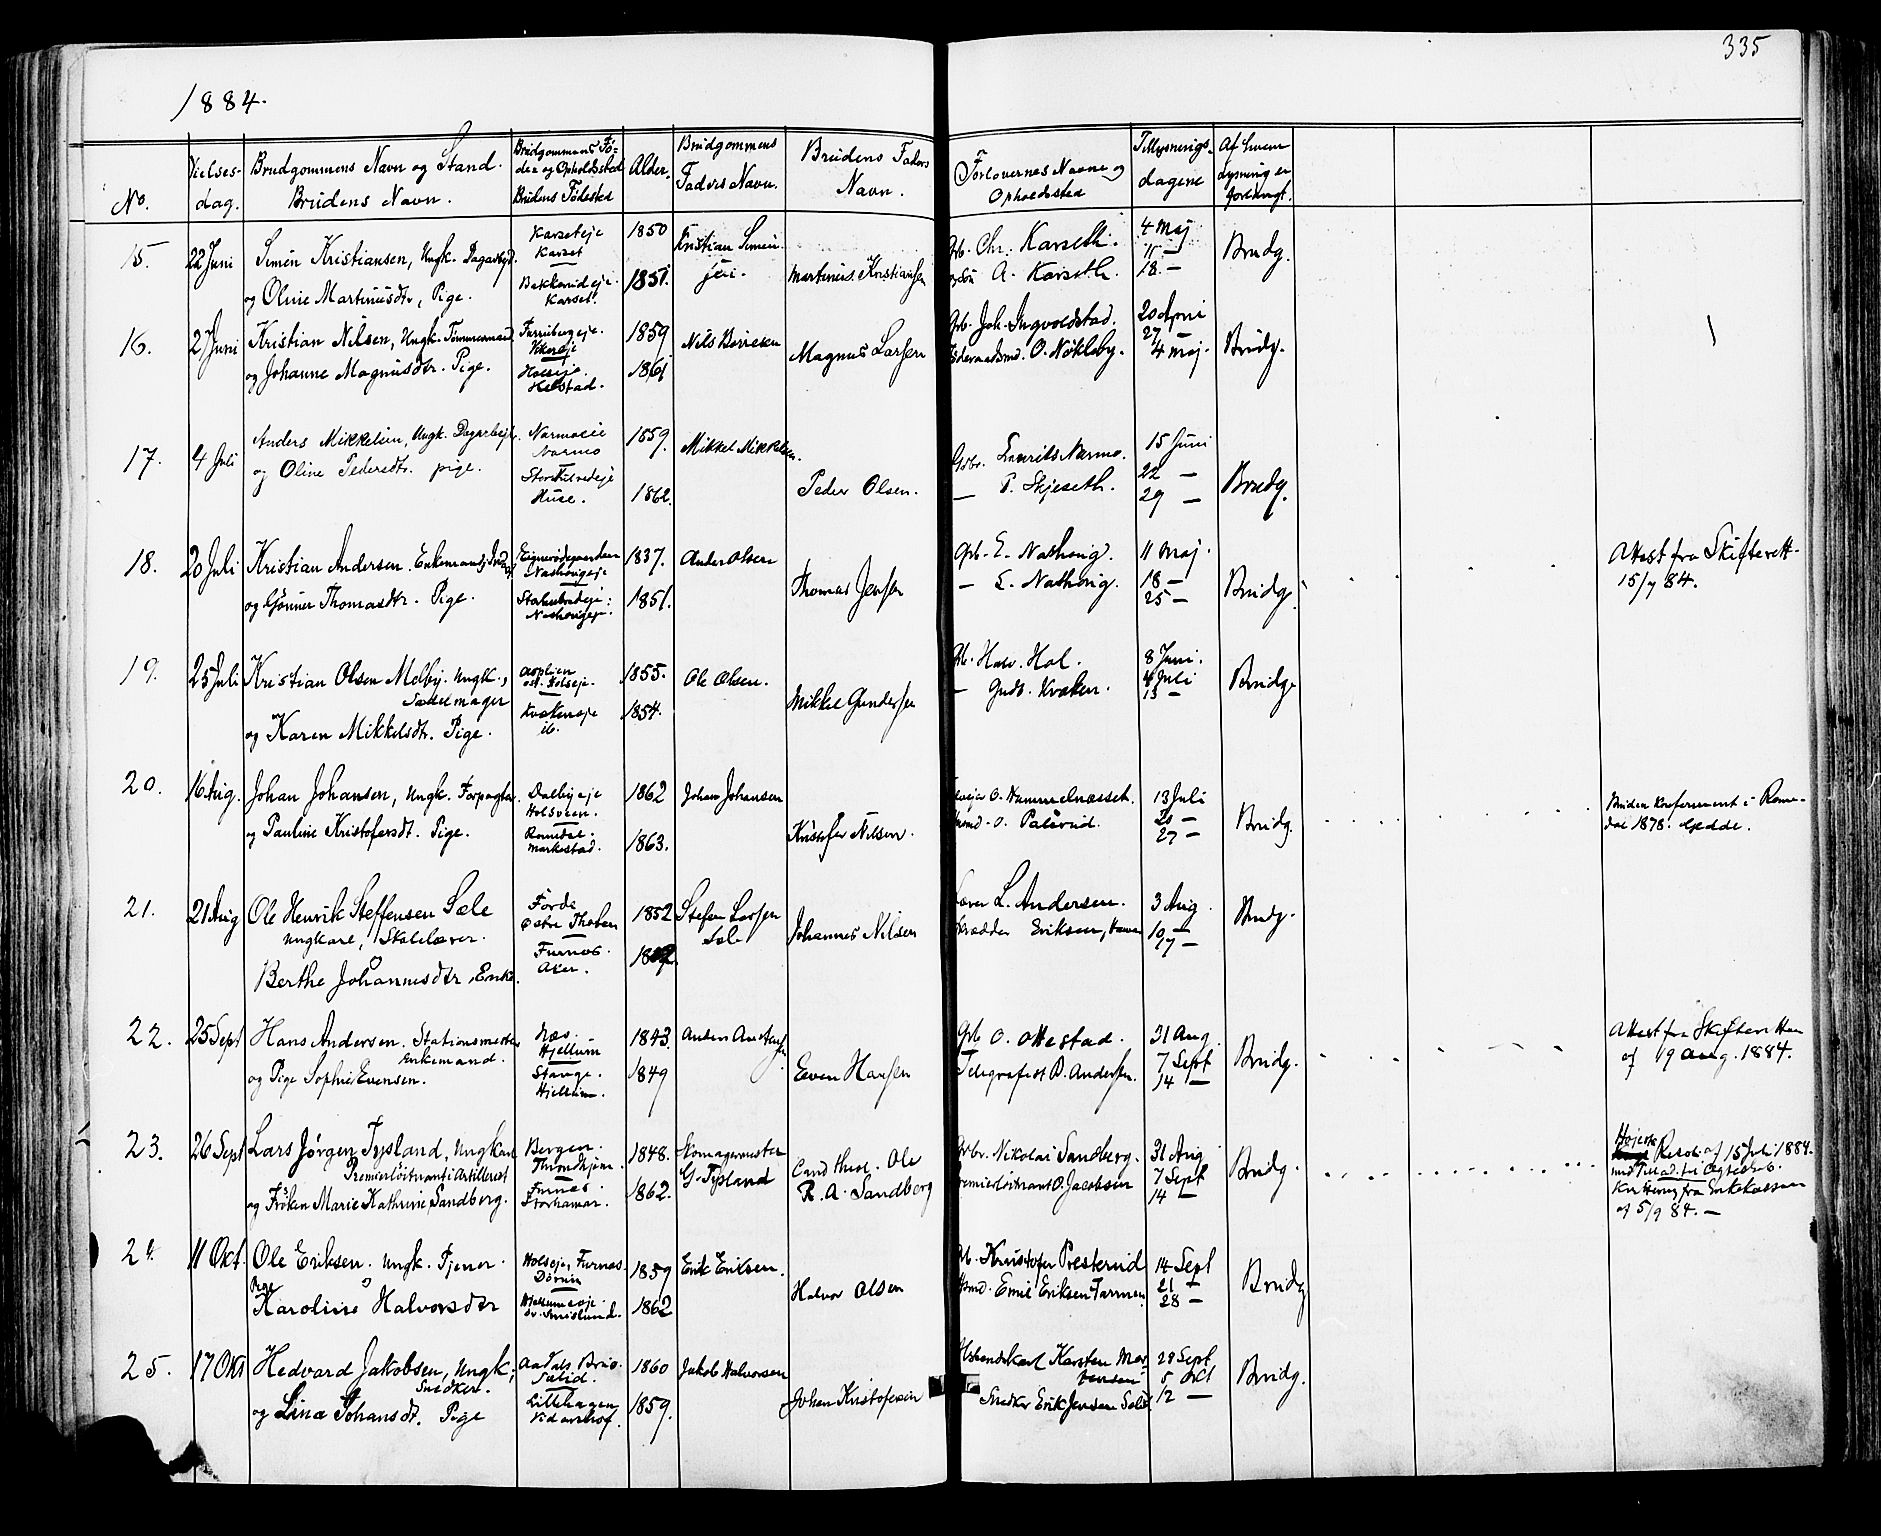 335
1884.
No.
Vielses-
dag.
Brudgommens Navn og Stand.
Brudens Navn.
Brudgommens Fø-
de= og Opholdssted
Brudens Fødested
Alder.
Brudgommens
Faders Navn.
Brudens Faders
Navn.
Forlovernes Navne og
Opholdssted
Tillysnings-
dagene
Af hvem
Lysning er
forlangt.
15.
22 Juni
Simen Kristiansen, Ungk. Dagarbejd.
og Oline Martinusdtr, Pige.
Karseteje
Karset
Bakkerudeje.
Karset.
1850
1851.
Kristian Simen-
sen.
Martinus Kristiansen
Gb. Chr. Karseth.
A. Karseth.
4 Maj
11 —
18. —
Brudg.
16.
27 Juni
Kristian Nilsen, Ungk. Tømmermand
og Johanne Magnusdtr. Pige.
Furubergeje.
Hoelseje.
Helstad.
1859
1861
Nils
Magnus Larsen
Gb. Joh. Ingvoldstad.
O. Nøkleby.
20 April
27 —
4 Maj.
Brudg.
17.
4 Juli
Anders Mikkelsen, Ungk. Dagarbejder.
og Oline Pedersdtr. pige.
Narmoeie
Narmo
Huse.
1859.
1862.
Mikkel Mikkelsen.
Peder Olsen.
Gbr. Laurits Narmo.
— P. Skjeseth.
15 Juni
22 —
29 —
Brudg.
18.
20 Juli
Kristian Andersen. Enkemand,
og Gunner Thomasdtr. Pige.
Nashovigeje
Nashovigeje.
1837.
1851.
Anders Olsen
Thomas Jensen
Gb. E. Nashovig.
— L. Nashovig.
11 Maj.
18 —
25 —
Brudg.
Attest fra Skifterett.
15/7 84.
19.
25 Juli
Kristian Olsen Melby. Ungk.,
Sadelmager
og Karen Mikkelsdtr. Pige.
Asplien
Kvækeneje
ib.
1855.
1854.
Ole Olsen.
Mikkel Gundersen
Gb. Halv. Hol.
— Gudb. Kvæken.
8 Juni.
Juli
13 —
Brudg.
20.
16 Aug.
Johan Johansen, Ungk. Forpagter.
og Pauline Kristofersdt. Pige.
Dalbyeje
Holsveen.
Romedal.
Markestad.
1862
1863.
Johan Johansen
Kristofer Nilsen.
O. Hammelnæsset.
O. Palerud.
13 Juli
20 —
27 —
Brudg.
Bruden konfirmeret i Rome-
dal 1878. Gedde.
21.
21 Aug
Ole Henrik Steffensen Sæle
Ungkarl, Skolelærer.
Berthe Johannesdtr, Enke.
Førde
Furnæs.
Aker.
1852
Stefen Larsen
Sæle
Johannes Nilsen
L. Andersen.
Skrædder Eriksen, Hamar
3 Aug.
10 —
17 —
Brudg.
22.
25 Sept
Hans Andersen. Stationsmester
Enkemand.
og Pige Sophie Evensen.
Næs.
Hjellum
Stange.
Hjellum.
1843.
1849
Anders Andersen
Even Hansen
Gb. O. Ottestad.
Telegrafist D. Andersen.
31 Aug.
7 Sept
14 —
Brudg.
Attest fra Skifteretten
af 19 Aug. 1884.
23.
26 Sept
Lars Jørgen Tysland, Ungkarl
Premierløitnant i Artilleriet
og Frøken Marie Kathrine Sandberg.
Bergen.
Throndhjem.
Furnes.
Storhamar.
1848.
1862.
Skomagermester
G. Tysland
Cand. theol. Ole
R. A. Sandberg
Gbr. Nikolai Sandberg.
Premierløitnant O. Jacobsen
31 Aug
7 Sept
14 —
Brudg.
Højeste
Resol. af 15 Juli 1884.
med Tillad. til Ægtesk.
Kvittering fra Enkekassen
af 5/9 84. —
24.
11 Okt.
Ole Eriksen. Ungk. Tjener.
Pige
Karoline Halvorsdtr
Holseje, Furnes.
Hjellumseje.
1859
1862
Erik Eriksen.
Halvor Olsen
Gb. Kristofer Presterud
Emil Eriksen Farmen.
14 Sept
21 —
28 —
Brudg
25.
17 Okt
Hedvard Jakobsen, Ungk.,
Snedker.
og Lina Johansdt. Pige
Aadals Brug.
Sælid.
Lillehagen
Vidarshof.
1860
1859.
Jakob Halvorsen
Johan Kristofersen
Karsten Mor-
tensen
Snedker Erik Jensen Sælid
28 Sept
5 Okt
12 —
Brudg.